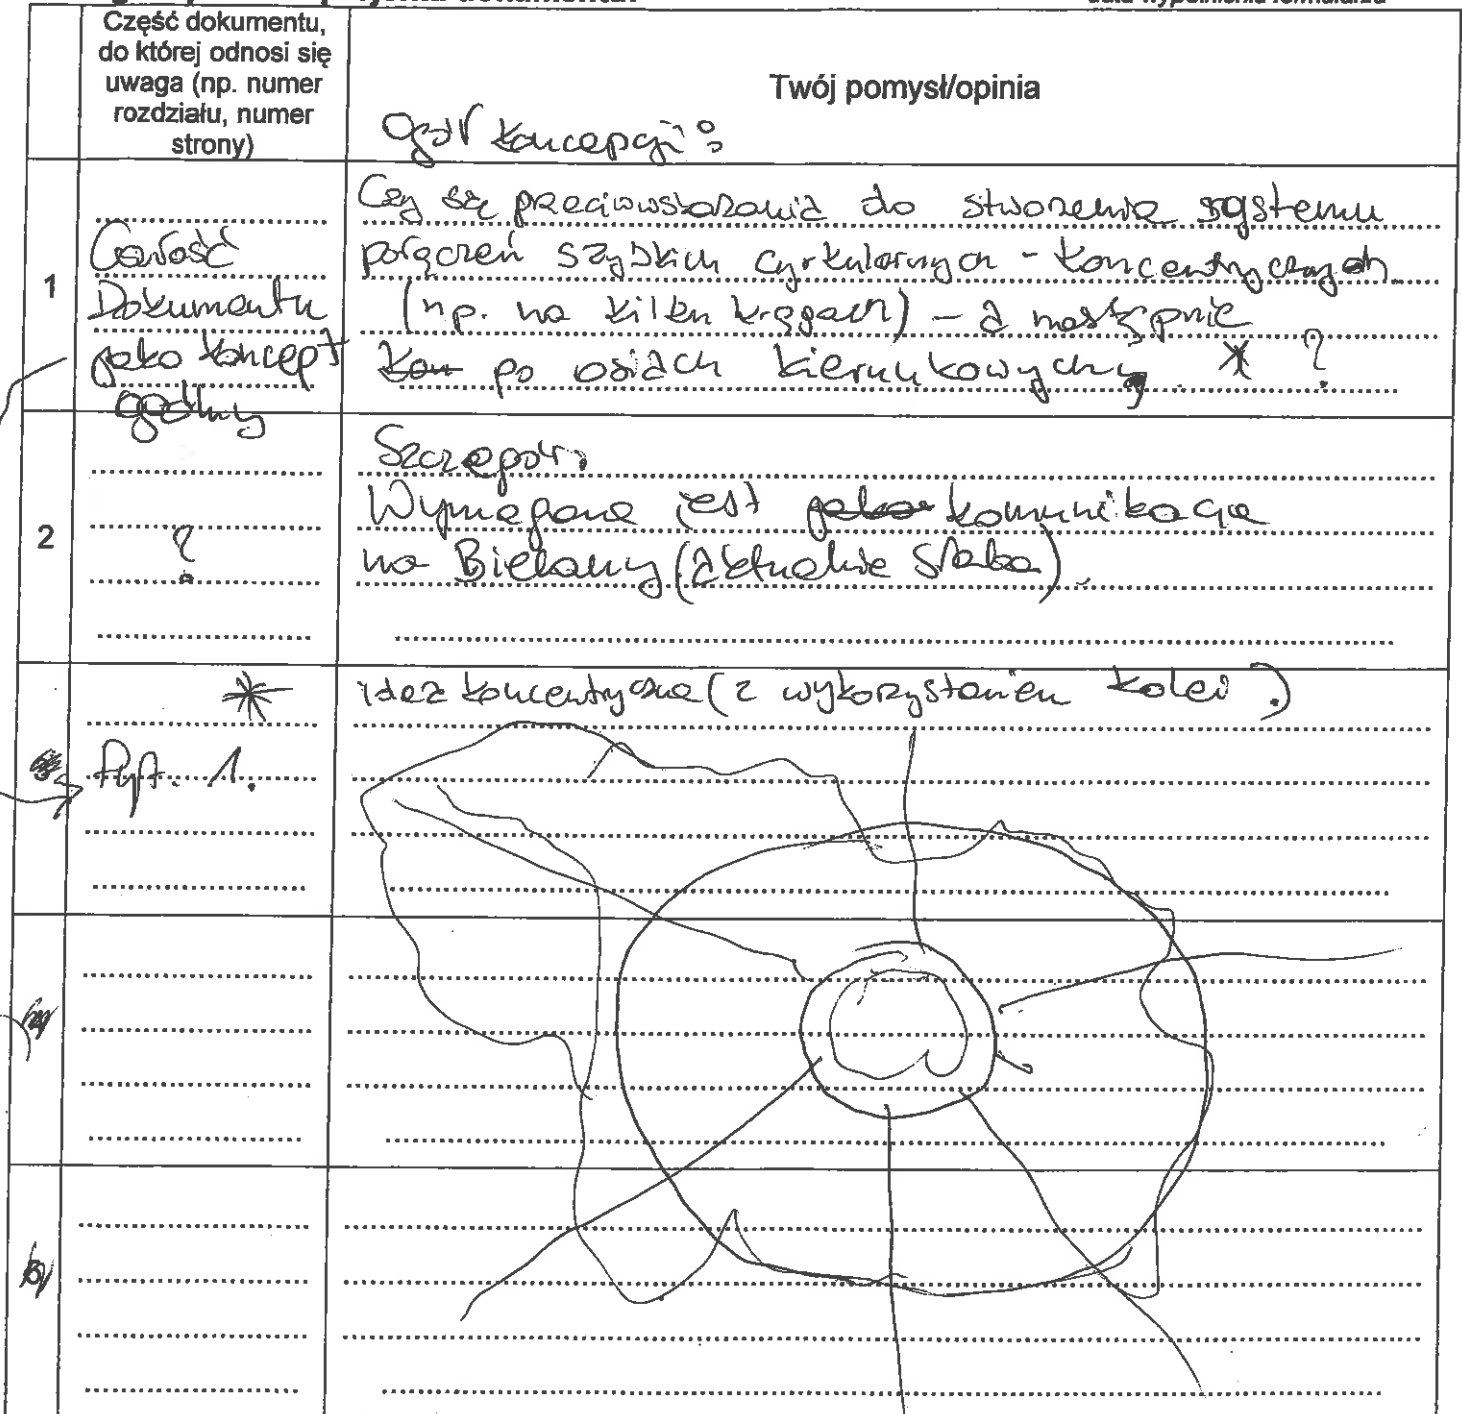 Część dokumentu,
do której odnosi się
uwaga (np. numer
rozdziału, numer
strony)
Twój pomysł/opinia
koncepcji:
1
Całość
Dokumentu
jako koncept
Czy są przeciwskazania do stworzenia systemu
połączeń szybkich cyrkularnych - koncentrycznych
(np. na kilku kręgach) - a następnie
kon po osiach kierunkowych, * ?
2
?
Szczegół:
Wymagana jest jako komunikacja
na Bielany (aktualnie słaba).
*
idea koncentryczna (z wykorzystaniem kolei ?)
Pyt. 1.